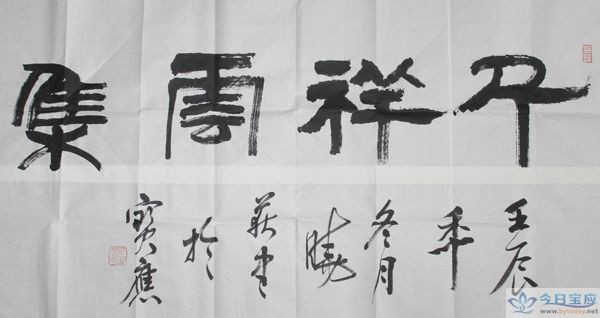 祥雲集
壬辰
年
冬月
曉
於
寶應
今日宝应
www.bytoday.net